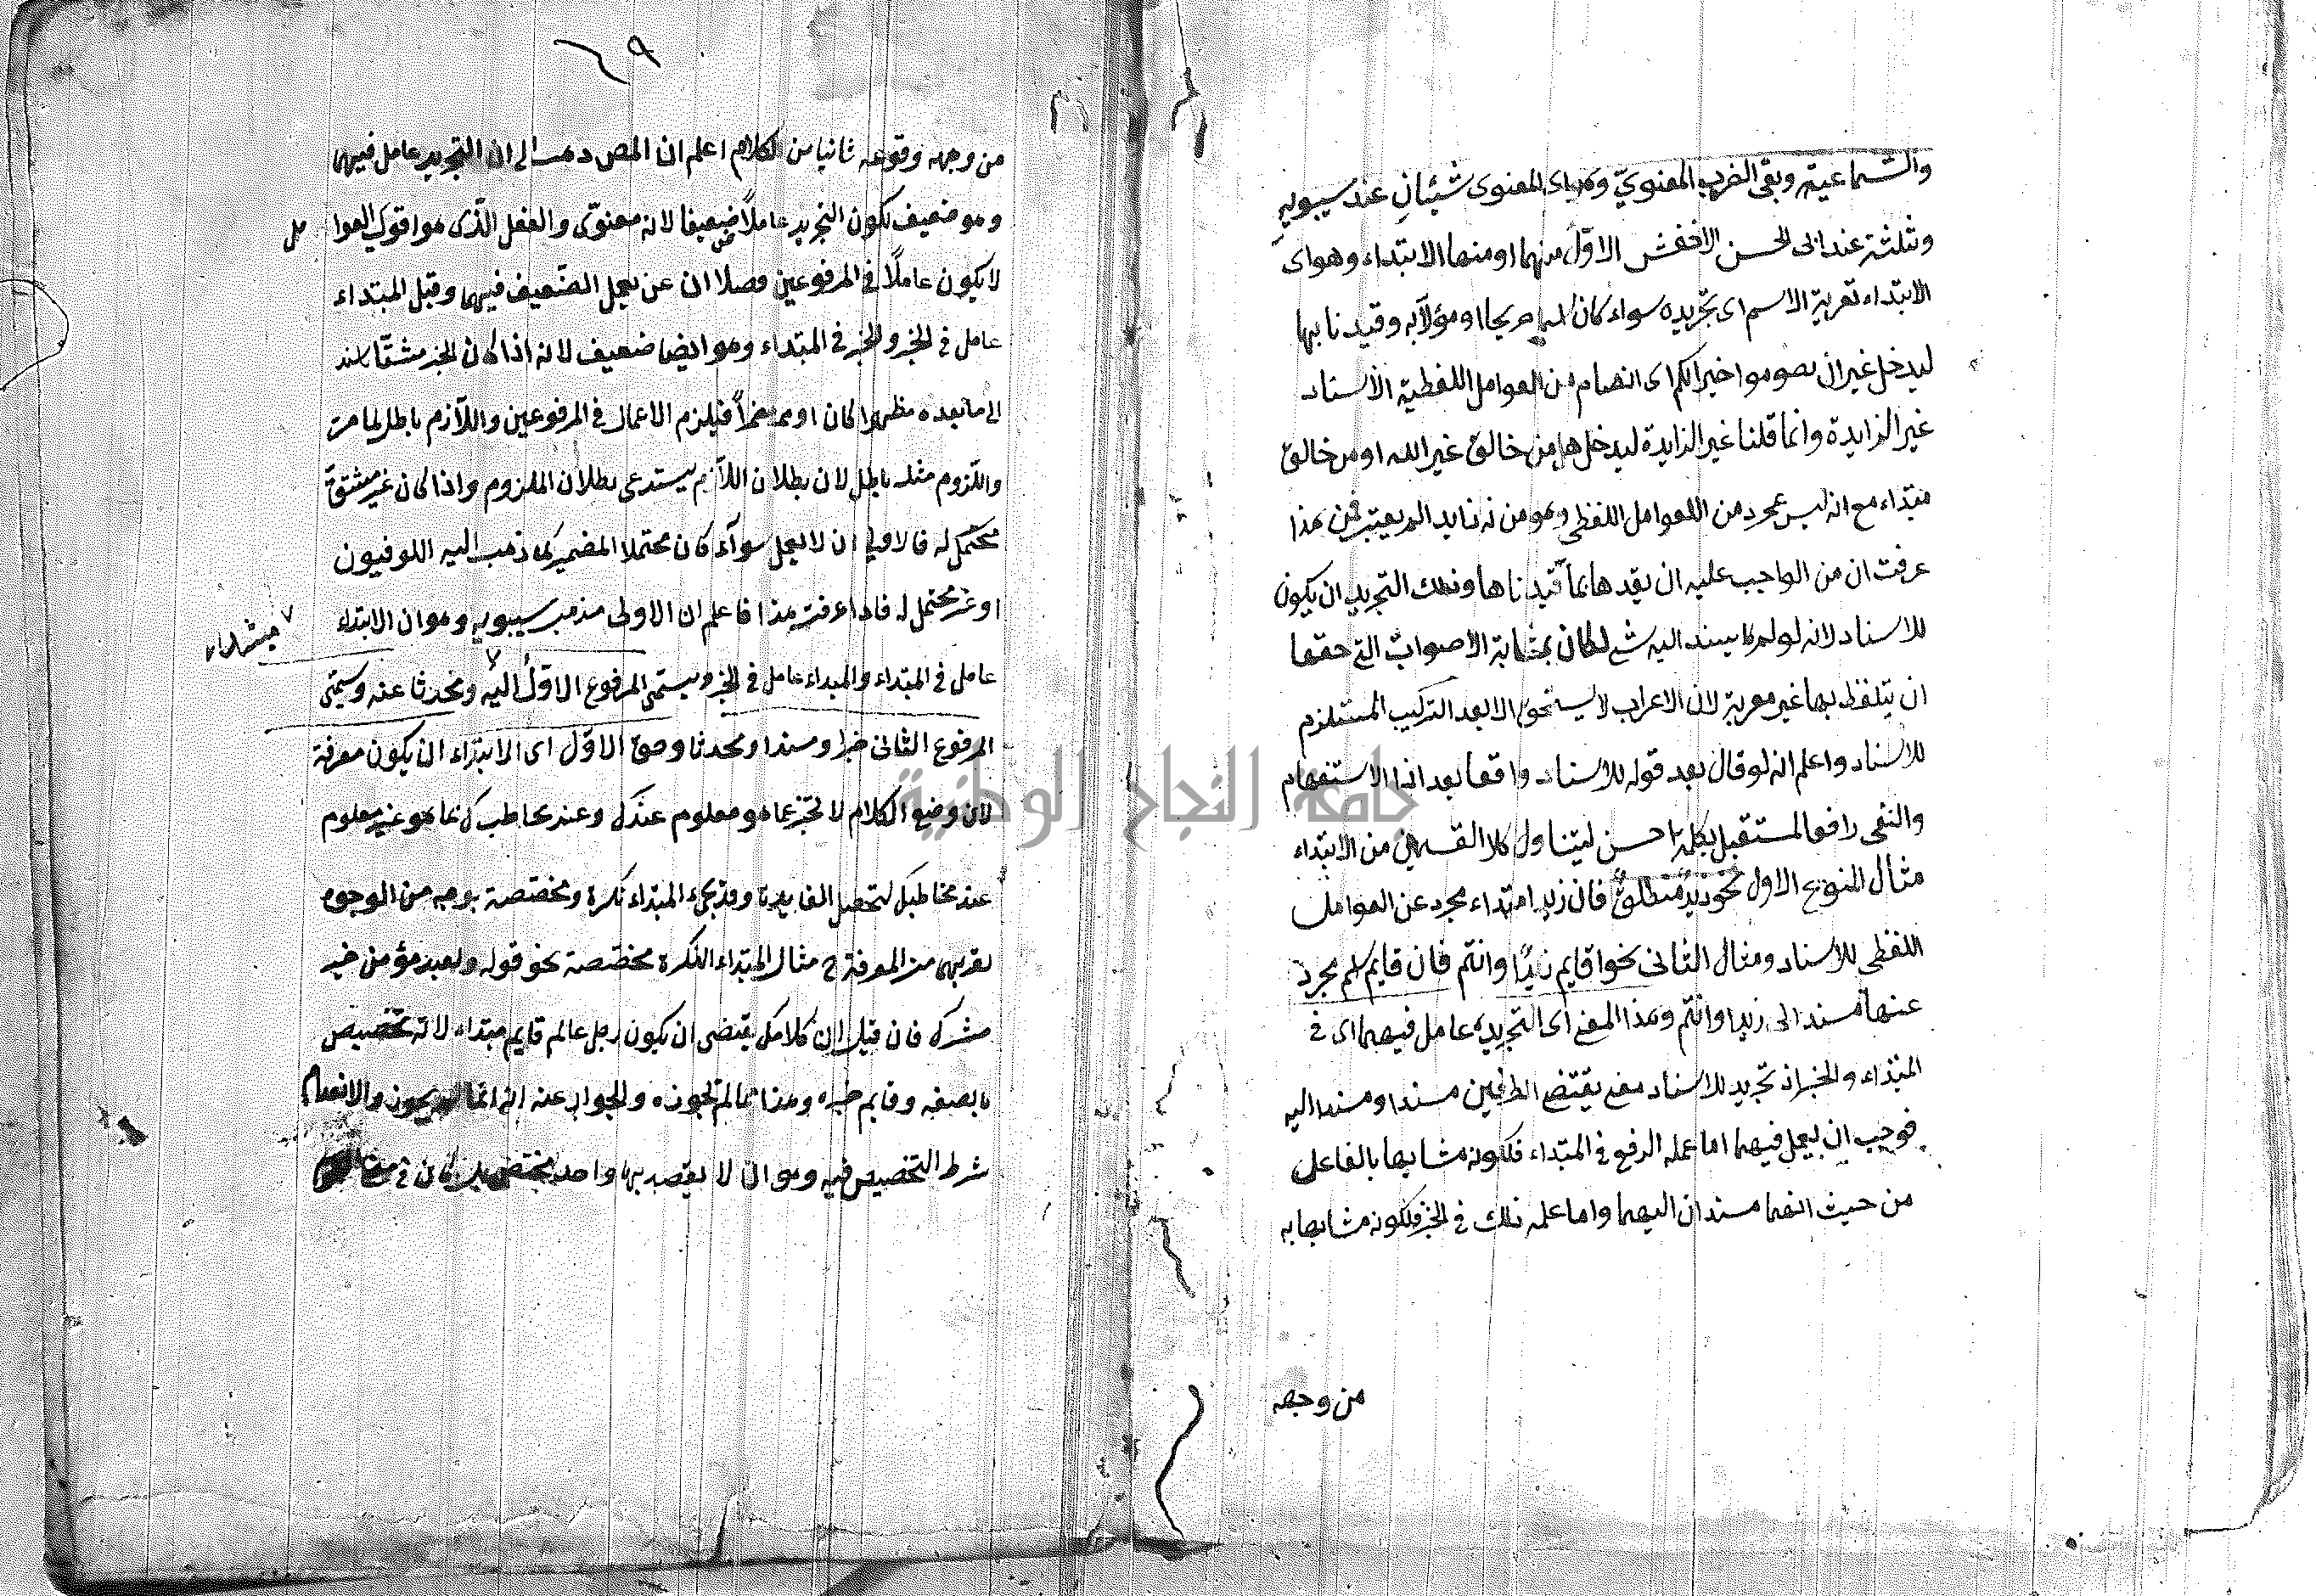 والسماعية وبقي الضرب المعنويّ وهو اى المعنوى شيئان عند سيبويه
وثلثة عند ابى الحسن الاخفش الاوّل منهما او منها الابتداء وهو اى
الابتداء تعرية الاسم اى تجريده سواء كان اسما صريحا او مؤلا به وقيدنا بهما
ليدخل غير ان تصوموا خير لكم اى الصيام من العوامل اللفظية الاسناد
غير الزايدة وانما قلنا غير الزايدة ليدخل هل من خالق غير الله او من خالق
مبتداء مع انه ليس بمجرد من العوامل اللفظى وهو من زايد لم يعتبر فمن هذا
عرفت ان من الواجب عليه ان يقيدها بما قيدناها وذلك التجريد ان يكون
للاسناد لانه لو لم يسند اليه شئ لكان بمثابة الاصوات التى حقها
ان يتلفظ بها غير معربة لان الاعراب لا يستحق الا بعد التركيب المستلزم
للاسناد واعلم انه لو قال بعد قوله للاسناد واقعا بعد اذا الاستفهام
والنفى رافعا لمستقبل بكلمة احسن ليتناول كلا القسمين من الابتداء
مثال النوع الاول نحو زيدٌ منطلقٌ فان زيدا مبتداء مجرد عن العوامل
اللفظى للاسناد ومثال الثانى نحو اقايم زيدٌ او انتم فان قايم اسم مجرد
عنها مسند الى زيد او انتم وهذا المعنى اى التجريد عامل فيهما اى فى
المبتداء والخبر اذ تجريد للاسناد معنى يقتضى الطرفين مسندا ومسندا اليه
فوجب ان يعمل فيهما اما عمله الرفع فى المبتداء فلكونه مشابها بالفاعل
من حيث انهما مسندان اليهما واما عمله ذلك فى الخبر فلكونه مشابها به
من وجهه
٢٩
من وجهه وقوعه ثانيا من الكلام اعلم ان المص ذهب الى ان التجريد عامل فيهما
وهو ضعيف لكون التجريد عاملاً ضعيفا لانه معنوى والفعل الّذى هو اقوى العوا مل
لا يكون عاملًا فى المرفوعين فضلا عن ان يعمل الضّعيف فيهما وقيل المبتداء
عامل فى الخبر والخبر فى المبتداء وهو ايضا ضعيف لانه اذا كان الخبر مشتقّا يسند
الى ما بعده مظهرا كان او مضمراً فيلزم الاعمال فى المرفوعين واللّازم باطل لما مرّ
والملزوم مثله باطل لان بطلان اللّازم يستدعى بطلان الملزوم واذا كان غير مشتقّ
محتمل له فالاولى ان لا يعمل سوآء كان محتملا المضمير كما ذهب اليه الكوفيون
او غير محتمل له فاذا عرفت هذا فاعلم ان الاولى مذهب سيبويه وهو ان الابتداء
عامل فى المبتداء والمبتداء عامل فى الخبر ويسمّى المرفوع الاوّلُ اليه ومحدثا عنه ويسمّى
المرفوع الثانى خبرا ومسندا ومحدثا وحقّ الاوّل اى الابتداء ان يكون معرفة
لان وضع الكلام لا تخبر عما هو معلوم عندك وعند مخاطبك عما هو غير معلوم
عند مخاطبك لتحصل الفايدة وقد يجئ المبتداء نكرة ومخصّصة بوجه من الوجوه
يقربها من المعرفة ح مثال المبتداء النكرة مخصّصة نحو قوله ولعبد مؤمن خير
مشرك فان قيل ان كلامك يقتضى ان يكون رجل عالم قايم مبتداء لانه تخصيص
بالصفة وقايم خبره وهذا ممالم تجوزه والجواب عنه انه انما والانعدام
شرط التخصيص فيه وهو ان لا يقصد بها واحد مختص بل كان فى معنا
جامعة النجاح الوطنية